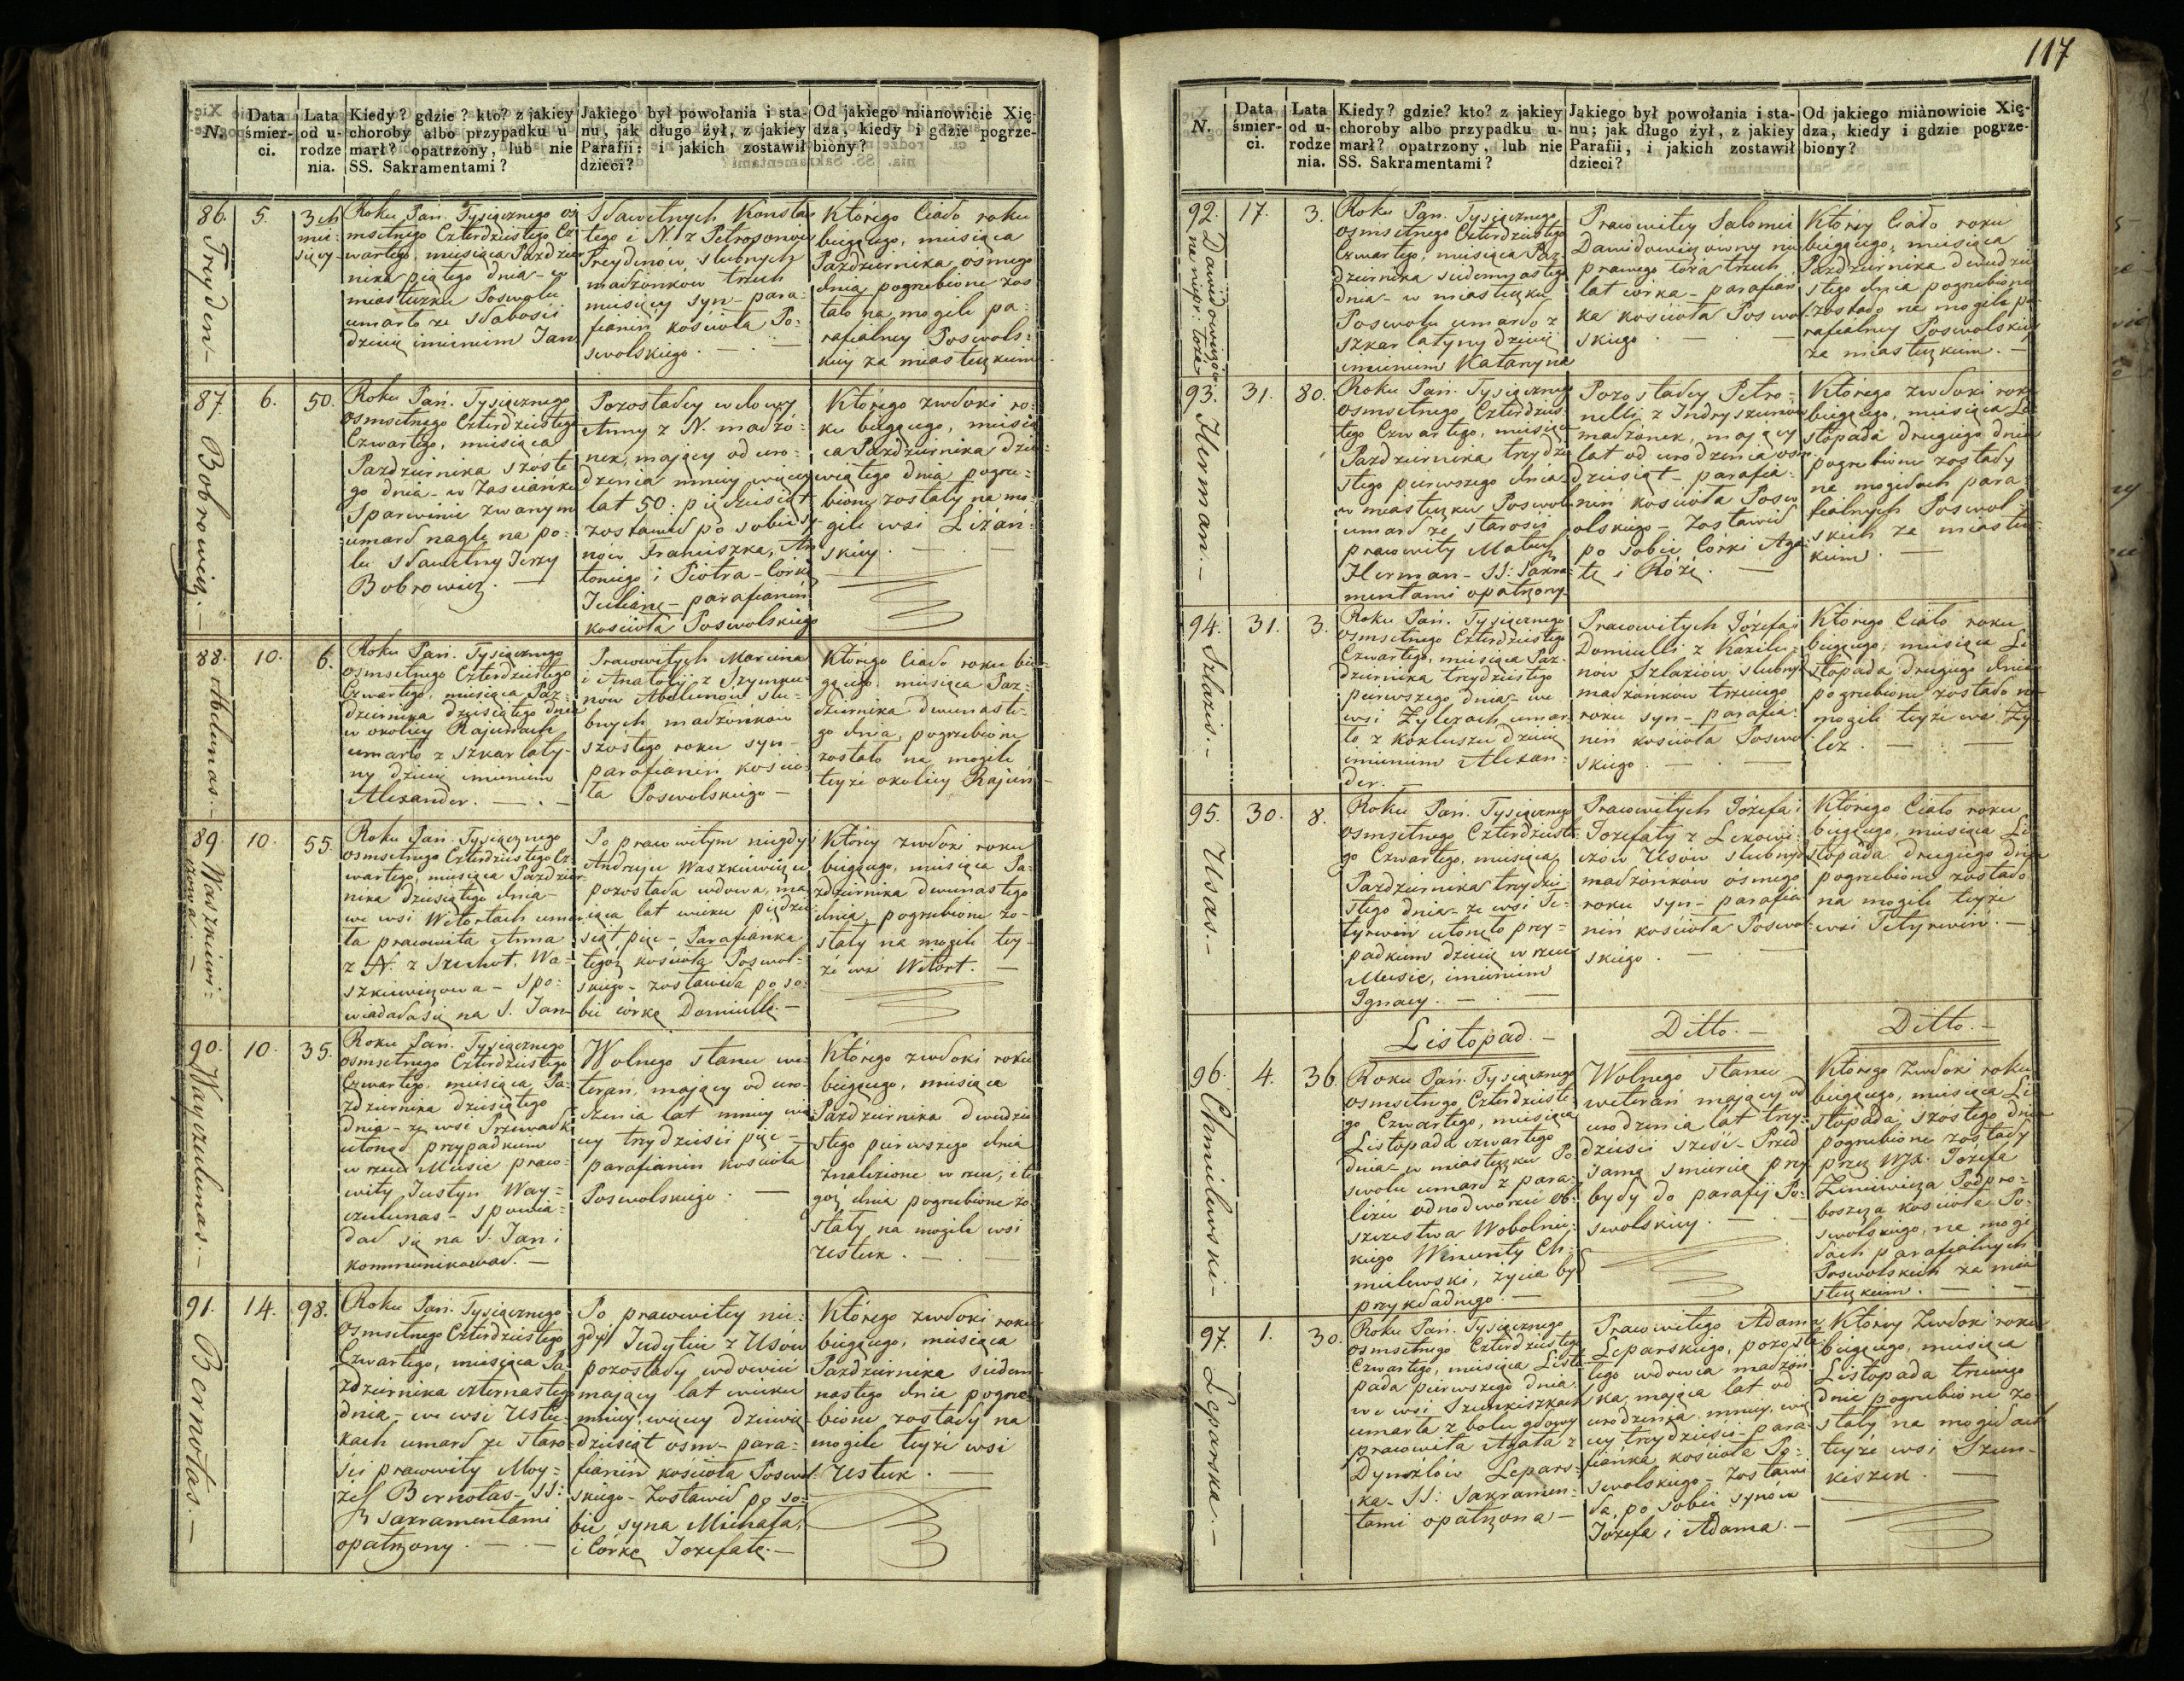 117
N.
Data śmier-
ci.
Lata
od u-
rodze
nia.
Kiedy? gdzie? kto? z jakiey
choroby albo przypadku u-
marł? opatrzony, lub nie
SS. Sakramentami?
Jakiego był powołania i sta-
nu, jak długo żył, z jakiey
Parafii: i jakich zostawił
dzieci?
Od jakiego mianowicie Xię-
dza, kiedy i gdzie pogrze-
biony?
86.
Treyden –
5.
3 ch
mie-
sięcy
Roku Pań. Tysiącznego oś
msetnego Czterdziestego Cz
wartego, miesiąca Paździer
nika piątego dnia – w
miasteczku Poswolu
umarło ze słabości
dziecię imieniem Jan
Sławetnych Konsta
tego i N. z Petrosonów
Treydenów, slubnych
małżonkow trzech
miesięcy syn – para-
fianin kościoła Po-
swolskiego. –
Którego Ciało roku
bieggcego, miesiąca
Pazdziernika osmego
dnia pogrzebione zos
tało na mogile pa-
rafialney Poswols-
kiey za miasteczkiem.
87.
Bobrowicz. –
6.
50.
Roku Pań. Tysiącznego
osmsetnego Czterdziestego
Czwartego, miesiąca
Pazdziernika szóste
go dnia – w Zaścianku
Sparwinie zwanym
umarł nagle na po-
lu sławetny Jerzy
Bobrowicz. –
Pozostały wdowy
Anny z N. małżo-
nek, mający od uro-
dzenia mniey więcey
lat 50. pięcdziesiąt
zostawił po sobie sy-
nów Franciszka, An
toniego i Piotra – Corkę
Juliannę – parafianin
kościoła Poswolskiego
Którego zwłoki ro-
ku bieggcego, miesią
ca Pazdziernika dzie-
wiątego dnia pogrze-
bione zostały na mo-
gile wsi Liżań-
skiey. –
88.
Abelunas. –
10.
6.
Roku Pań. Tysiącznego
osmsetnego Czterdziestego
Czwartego, miesiąca Paz-
dziernika dziesiątego dnia
w okolicy Rajunach
umarło z szkarlaty-
ny dziecię imieniem
Alexander. –
Pracowitych Marcina
i Anatolij z Szymku-
nów Abelunów slu-
bnych małżonków
szóstego roku syn –
parafianin kościo-
ła Poswolskiego –
Którego Ciało roku bie-
gącego, miesiąca Paz-
dziernika dwunaste-
go dnia, pogrzebione
zostało na mogile
teyże okolicy Rajun –
89.
Waszkiewi-
czowa. –
10.
55.
Roku Pań. Tysiącznego
osmsetnego Czterdziestego Cz
wartego, miesiąca Paździer-
nika dziesiątego dnia –
we wsi Witortach umar
ła pracowita Anna
z N. z Szuchot. Wa-
szkiewiczowa – spo-
wiadała się na S. Jan
Po pracowitym niegdy
Andrzeju Waszkiewiczu
pozostała wdowa, ma-
jąca lat wieku pięćdzie
siąt pięc – Parafianka
tegoż kościoła Poswol-
skiego – zostawiła po so-
bie córkę Domicellę. –
Którey zwłoki roku
bieggcego, miesiąca Pa-
zdziernika dwunastego
dnia, pogrzebione zo-
stały na mogile tey-
że wsi Witort. –
90.
Wayczulunas. –
10.
35.
Roku Pań. Tysiącznego
osmsetnego Czterdziestego
Czwartego, miesiąca Pa-
zdziernika dziesiątego
dnia – ze wsi
utonął przypadkiem
w rzece Musie praco-
wity Justyn Way-
czulunas – spowia-
dał się na S. Jan i
kommunikował. –
Wolnego stanu we-
teran, mający od uro-
dzenia lat mniey wię
cey trzydzieści pięc –
parafianin kościoła
Poswolskiego. –
Którego zwłoki roku
bieggcego, miesiąca
Pazdziernika dwudzie
stego pierwszego dnia
znalezione w rzece, i te
goż dnia pogrzebione zo
stały na mogile wsi
Ustuk. –
91.
Bernotas. –
14.
98.
Roku Pań. Tysiącznego
osmsetnego Czterdziestego
Czwartego, miesiąca Pa-
zdziernika czternastego
dnia – we wsi Ustu-
kach umarł ze staro-
ści pracowity Moy-
żesz Bernotas – SS:
Sakramentami
opatrzony. –
Po pracowitey nie-
gdyś Judycie z Usów
pozostały wdowiec
mający lat wieku
mniey, więcey dziewię
dziesiąt osm – para-
fianin kościoła Poswol
skiego – zostawił po so-
bie syna Michała,
i Córkę Jozefatę. –
Którego zwłoki roku
bieggcego, miesiąca
Pazdziernika siedem
nastego dnia pogrze-
bione zostały na
mogile teyże wsi
Ustuk. –
N.
Data
śmier-
ci.
Lata
od u-
rodze
nia.
Kiedy? gdzie? kto? z jakiey
choroby albo przypadku u-
marł? opatrzony, lub nie
SS. Sakramentami?
Jakiego był powołania i sta-
nu; jak długo żył, z jakiey
Parafii, i jakich zostawił
dzieci?
Od jakiego mianowicie Xię-
dza, kiedy i gdzie pogrze-
biony?
92.
Dawidowiczów
na niepr: łoża
17.
3.
Roku Pań. Tysiącznego
osmsetnego Czterdziestego
Czwartego, miesiąca Paz-
dziernika siedemnastego
dnia – w miasteczku
Poswolu umarło z
szkarlatyny dziecię
imieniem Katarzyna
Pracowitey Salomei
Dawidowiczówny nie
prawego łoża trzech
lat córka – parafian
ka kościoła Poswol
skiego. –
Którey Ciało roku
bieggcego, miesiąca
Pazdziernika dwudzie
stego dnia pogrzebione
zostało na mogile pa-
rafialney Poswolskiey
za miasteczkiem. –
93.
Herman. –
31.
80.
Roku Pań. Tysiącznego
osmsetnego Czterdzies
tego Czwartego, miesiąca
Pazdziernika trzydzie
stego pierwszego dnia
w miasteczku Poswolu
umarł ze starości
pracowity Mateusz
Herman – SS: Sakra-
mentami opatrzony
Pozostałey Petro-
nelli z Indryszunów
małżonek, mający
lat od urodzenia osm-
dziesiąt – parafia-
nin kościoła Posw
olskiego – zostawił
po sobie Córki Aga-
tę i Różę. –
Którego zwłoki roku
bieggcego, miesiąca Li-
stopada drugiego dnia
pogrzebione zostały
na mogiłach para-
fialnych Poswol-
skich za miastecz-
kiem. –
94.
Szlazis. –
31.
3.
Roku Pań. Tysiącznego
osmsetnego Czterdziestego
Czwartego, miesiąca Paz-
dziernika trzydziestego
pierwszego dnia – we
wsi Żylezach umar-
ło z kokluszu dziecię
imieniem Alexan-
der. –
Pracowitych Józefa i
Domicelli z Kazilu-
nów Szlaziów slubnych
małżonków trzeciego
roku syn – parafia-
nin kościoła Poswol
skiego. –
Którego Ciało roku
bieggcego, miesiąca Li
stopada, drugiego dnia
pogrzebione zostało na
mogile teyże wsi Ży-
lez. –
95.
Usas. –
30.
8.
Roku Pań. Tysiącznego
osmsetnego Czterdzieste-
go Czwartego, miesiąca
Pazdziernika trzydzie-
stego dnia – ze wsi Te-
tyrwin utonęło przy-
padkiem dziecię w rzece
Musie, imieniem
Ignacy. –
Pracowitych Józefa i
Jozefaty z Lekowi-
czow Usów slubnych
małżonków ósmego
roku syn – parafia-
nin kościoła Poswol-
skiego. –
Którego Ciało roku
bieggcego, miesiąca Li-
stopada drugiego dnia
pogrzebione zostało
na mogile teyże
wsi Tetyrwin. –
Listopad. –
Ditto. –
Ditto. –
96.
Chmielewski –
4.
36.
Roku Pań. Tysiącznego
osmsetnego Czterdzieste-
go Czwartego, miesiąca
Listopada czwartego
dnia – w miasteczku Po
swolu umarł z para-
liżu odnodworiec ob-
szczestwa Wobolnic-
kiego Wincenty Ch-
mielewski, życia był
przykładnego. –
Wolnego stanu
weteran mający od
urodzenia lat trzy-
dzieści sześć – Przed
samą smiercią przy-
były do parafij Po-
swolskiey. –
Którego Zwłoki roku
bieggcego, miesiąca Li-
stopada, szóstego dnia
pogrzebione zostały
przez WJX. Jozefa
Zieniewicza Podpro-
boszcza kościoła Po-
swolskiego, na mogi-
łach parafialnych
Poswolskich za mia
steczkiem. –
97.
Leparska. –
1.
30.
Roku Pań. Tysiącznego
osmsetnego Czterdziestego
Czwartego, miesiąca Listo
pada pierwszego dnia
we wsi Szunkiszkach
umarła z bolu głowy
pracowita Agata z
Dynożlów Lepars-
ka – SS: Sakramen-
tami opatrzona –
Pracowitego Adama
Leparskiego, pozosta
tego wdowca małżon
ka, mająca lat od
urodzenia mniey, wię
cey trzydzieści – para
fianka kościoła Po-
swolskiego – zostawi
ła, po sobie synów
Józefa i Adama. –
Którey Zwłoki roku
bieggcego, miesiąca
Listopada trzeciego
dnia pogrzebione zo-
stały na mogiłach
teyże wsi Szun-
kiszek. –